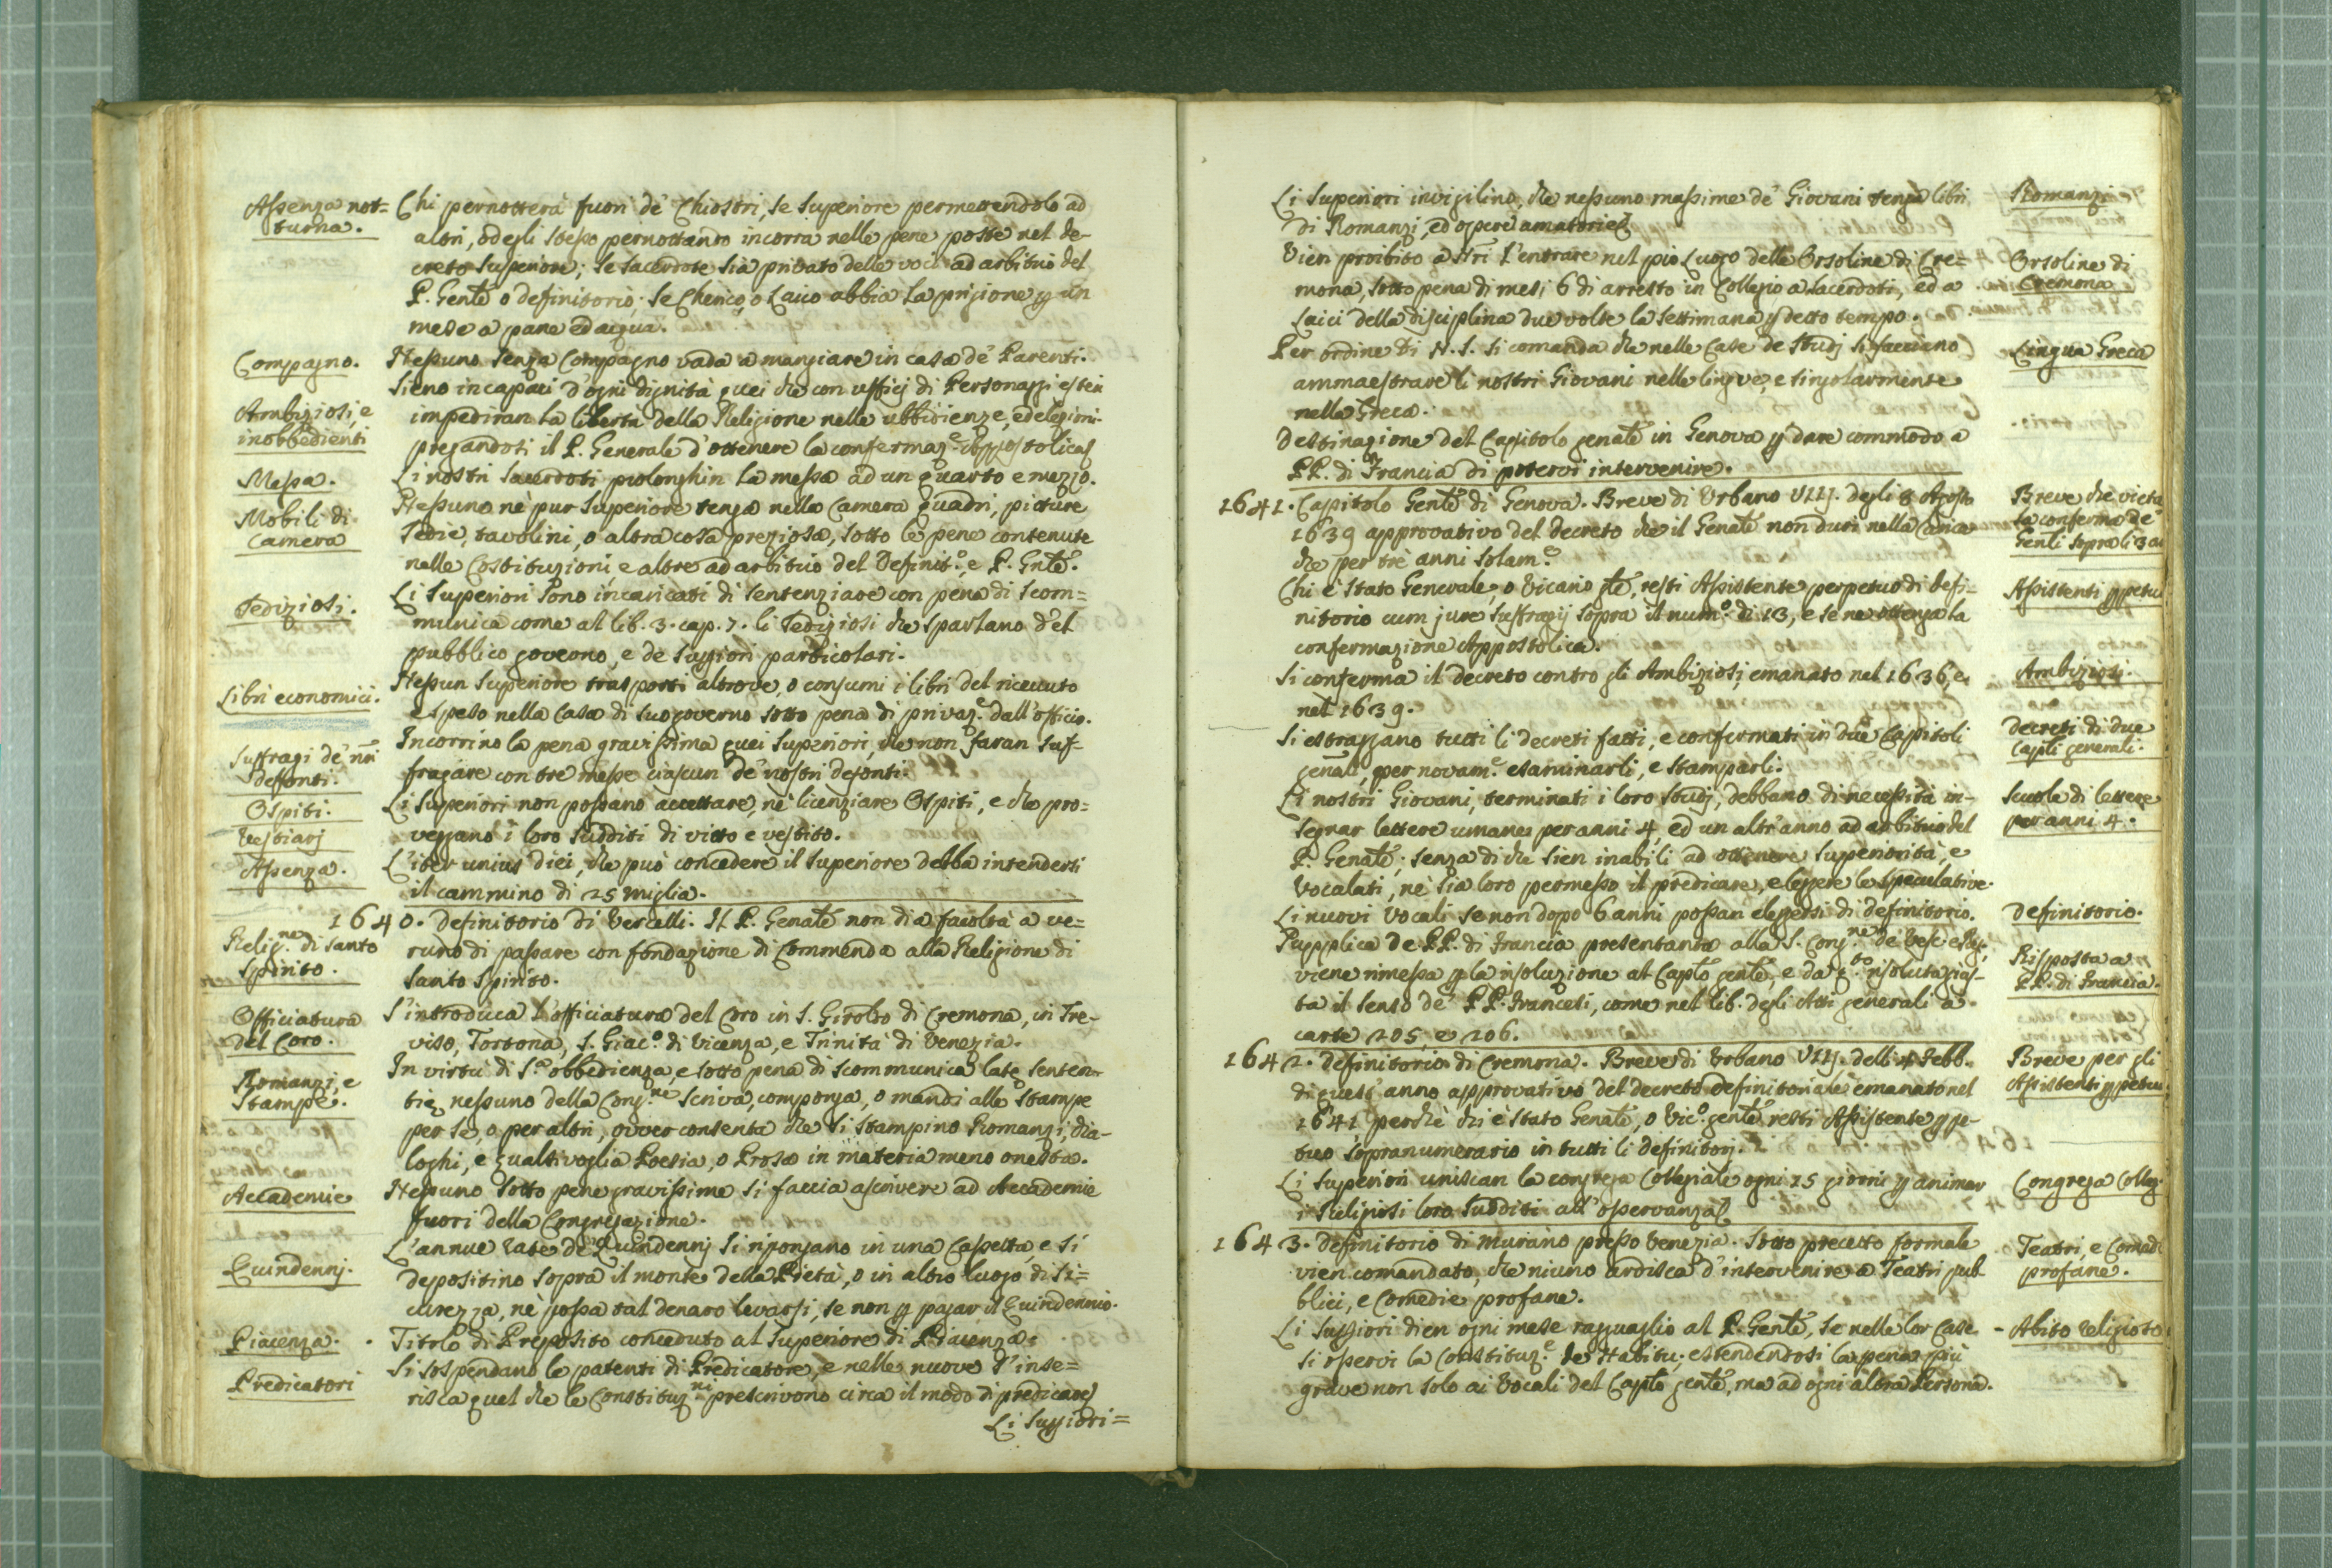 Assenza not=
turna.
Chi pernotterà fuori de' Chiostri, se Superiore permettendolo ad
altri, od egli stesso pernottando incorra nelle pene poste nel de-
creto Superiore; se Sacerdote sia privato delle voci ad arbitrio del
P. Gen̄le o definitorio; se Cherico, o Laico abbia la prigione p un
mese a pane ed acqua.
Compagno.
Nessuno senza Compagno vada a mangiare in casa de' Parenti.
Ambiziosi, e
inobbedienti
Sieno incapaci d'ogni dignità quei che con ufficj di Personaggi esteri
impediran la libertà della Religione nelle ubbidienze, ed elezioni
pregandosi il P. Generale d'ottenere la confermaz.e Appostolica
Messa.
Li nostri Sacerdoti prolonghin la messa ad un quarto e mezzo.
Mobili di
Camera
Nessuno nè pur Superiore tenga nella Camera quadri, pitture
sedie, tavolini, o altra cosa preziosa, sotto le pene contenute
nelle Costituzioni, e altre ad arbitrio del Definit.o, e P. Gn̄le.
Sediziosi.
Li Superiori sono incaricati di sentenziare con pena di scom=
munica come al lib. 3. cap. 7. li Sediziosi che sparlano del
pubblico governo, e de Suppiori particolari.
Libri economici.
Nessun Superiore trasporti altrove, o consumi i libri del ricevuto
e speso nella Casa di suo governo sotto pena di privaz.e dall'officio.
Suffragi de' nr̄i
deffonti.
Incorrino la pena gravissima quei Superiori, che non faran suf-
fragare con tre messe ciascun de' nostri defonti.
Ospiti.
Vestiarj
Li Superiori non possano accettare, nè licenziare Ospiti, e che pro=
veggano i loro sudditi di vitto e vestito.
Assenza.
L'iter unius diei, che può concedere il Superiore debba intendersi
il cammino di 25 miglia.
Relig.ne di Santo
Spirito.
1640. Definitorio di Vercelli. Il P. Genāle non dia facoltà a ve=
runo di passare con fondazione di Commenda alla Religione di
Santo Spirito.
Officiatura
del Coro.
S'introduca l'officiatura del Coro in S. Girol.o di Cremona, in Tre-
viso, Tortona, S. Giac.o di Vicenza, e Trinità di Venezia.
Romanzi, e
Stampe.
In virtù di S.a obbedienza, e sotto pena di scommunica latę senten-
tię, nessuno della Cong.ne scriva, componga, o mandi alle stampe
per se, o per altri, ovver consenta che si stampino Romanzi, dia-
loghi, e qualsivoglia Poesia, o Prosa in materia meno onesta.
Accademie
Nessuno sotto pene gravissime si faccia ascrivere ad Accademie
fuori della Congregazione.
Quindennj.
L'annue rate de' Quindennj si ripongano in una Cassetta, e si
depositino sopra il monte della Pietà, o in altro luogo di si=
curezza, nè possa tal denaro levarsi, se non p pagar il Quindennio.
Piacenza.
Titolo di Preposito conceduto al Superiore di Piacenza.
Predicatori
Si sospendano le patenti di Predicatore, e nelle nuove s'inse=
risca quel che le Constituz.ni prescrivono circa il modo di predicare
Li Suppiori=
Li Superiori invigilino, che nessuno massime de' Giovani tenga libri
di Romanzi, ed opere amatorie.
Romanzi
Vien proibito a' nr̄i l'entrare nel pio Luogo delle Orsoline di Cre=
mona, sotto pena di mesi 6 di arresto in Collegio a Sacerdoti, ed a
Laici della disciplina due volte la settimana p detto tempo.
Orsoline di
Cremona
Per ordine di N. S. si comanda che nelle Case de Studj si facciano
ammaestrare li nostri Giovani nelle lingue, e singolarmente
nella Greca.
Lingua Greca
Destinazione del Capitolo genāle in Genova p dare commodo a
PP. di Francia di potervi intervenire.
1641. Capitolo Gen̄le di Genova. Breve di Urbano VIIJ. degli 8 Agosto
1639 approvativo del decreto che il Genāle non duri nella Carica
che per trè anni solam.e
Breve che vieta
la conferma de'
Gen̄li sopra li 3 an
Chi è stato Generale, o Vicario gle, resti Assistente perpetuo di defi=
nitorio cum jure suffragij sopra il num.o di 13, e se ne ottenga la
confermazione Appostolica.
Assistenti ppetui
Si conferma il decreto contro gli Ambiziosi, emanato nel 1636, e
nel 1639.
Ambiziosi.
Si estraggano tutti li decreti fatti, e confermati in due Capitoli
genāli, per novam.e esaminarli, e stamparli.
Decreti di due
Capli generali.
Li nostri Giovani, terminati i loro studj, debbano di necessità in-
segnar lettere umane per anni 4, ed un altr'anno ad arbitrio del
P. Genāle; senza di che sien inabili ad ottenere superiorità, e
Vocalati, nè sia loro permesso il predicare, e leggere le speculative.
Scuole di lettere
per anni 4.
Li nuovi Vocali se non dopo 6 anni possan eleggersi di definitorio.
Definitorio.
Supplica de PP. di Francia presentata alla S. Cong.ne de' Vesc. e Reg.
viene rimessa p la risoluzione al Caplo gen̄le, e da q.to risoluta gius-
ta il senso de' PP. Francesi, come nel lib. degli Atti generali a
carte 205, e 206.
Risposta a
PP. di Francia.
1642. Definitorio di Cremona. Breve di Urbano VIIJ. delli 4 Febb.
di quest'anno approvativo del decreto definitoriale emanato nel
1641, perchè chi è stato Genāle, o Vic.o gen̄le resti Assistente ppe-
tuo sopranumerario in tutti li definitorj.
Breve per gli
Assistenti ppetui
Li Superiori uniscan la congrega Collegiale ogni 15 giorni p animar
i Religiosi loro sudditi all'osservanza.
Congrega Colleg.
1643. Definitorio di Murano presso Venezia. Sotto precetto formale
vien comandato, che niuno ardisca d'intervenire a Teatri pub
blici, e Comedie profane.
Teatri, e Comed
profane.
Li Suppiori dien ogni mese ragguaglio al P. Gen̄le, se nelle lor Case
si osservi la Constituz.e de Habitu; estendendosi la pena più
grave non solo ai Vocali del Caplo gen̄le, ma ad ogni altra Persona.
- Abito religioso